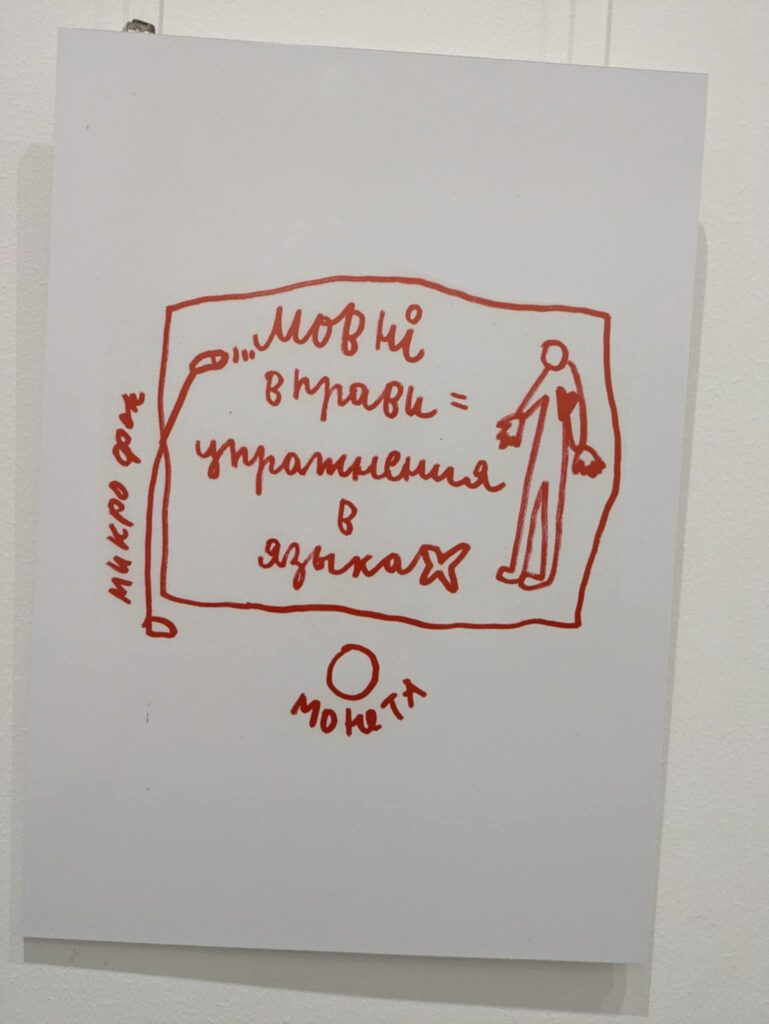 ...Мовні
вправи =
упражнения
в
языках
микрофон
монета